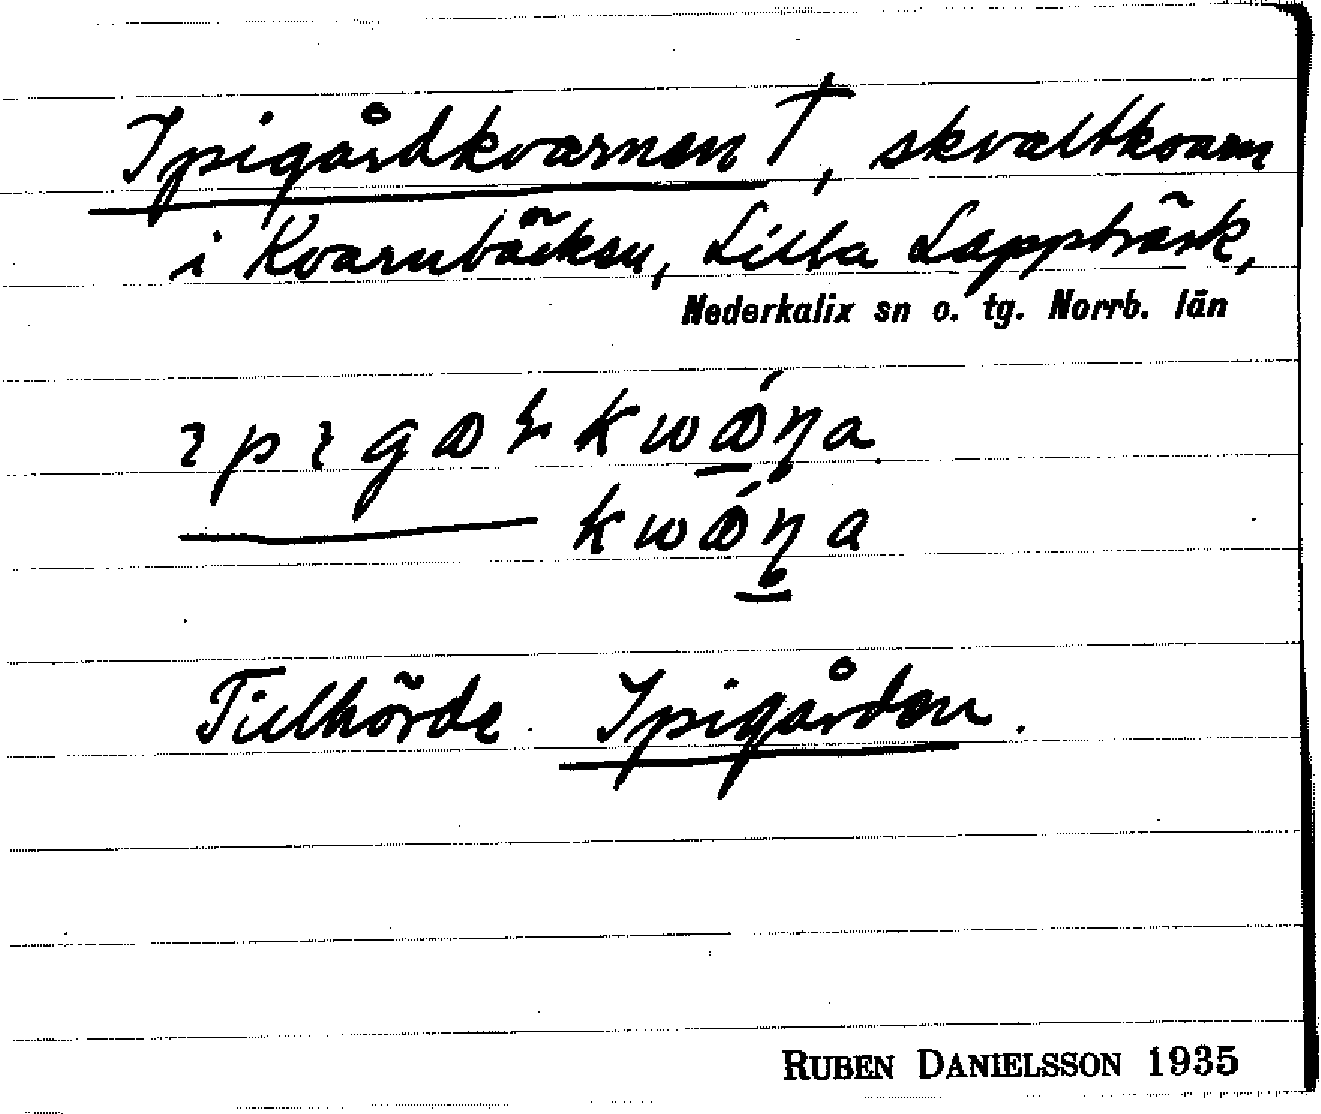 Ipigårdkvarnen †, skvaltkvarn
i Kvarnbäcken, Lilla Lappträsk,
Nederkalix sn o. tg. Norrb. län
Tillhörde Ipigården.
RUBEN DANIELSSON 1935